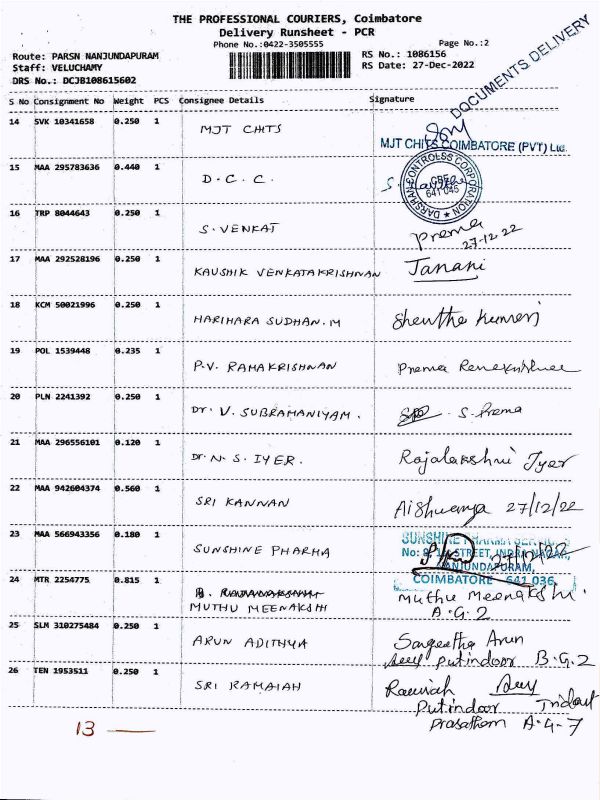 THE PROFESSIONAL COURIERS, Coimbatore
Delivery Runsheet - PCR
Phone No.:0422-3505555
Page No.:2
Route: PARSN NANJUNDAPURAM
RS No.: 1086156
Staff: VELUCHAMY
RS Date: 27-Dec-2022
DRS No.: DCJB108615602
DOCUMENTS DELIVERY
S No Consignment No Weight PCS Consignee Details Signature
14 SVK 10341658 0.250 1 MJT CHITS
MJT CHITS COIMBATORE (PVT) Ltd.
15 MAA 295783636 0.440 1 D.C.C.
DARSHAN CONTROLSS CORPORATION
CBE
641 045
16 TRP 8044643 0.250 1 S. VENKAT Prema
27-12-22
17 MAA 292528196 0.250 1 KAUSHIK VENKATAKRISHNAN Janani
18 KCM 50021996 0.250 1 HARIHARA SUDHAN.M
19 POL 1539448 0.235 1 P.V. RAMAKRISHNAN Prema
20 PLN 2241392 0.250 1 Dr. V. SUBRAMANIYAM. S. Prema
21 MAA 296556101 0.120 1 Dr. N. S. IYER. Rajalakshmi Iyer
22 MAA 942604374 0.560 1 SRI KANNAN Aishwarya 27/12/22
23 MAA 566943356 0.180 1 SUNSHINE PHARMA
SUNSHINE PHARMA
STREET, INDRA NAGAR,
27/12/22
NANJUNDAPURAM,
COIMBATORE 641 036
24 MTR 2254775 0.815 1
MUTHU MEENAKSHI Muthu Meenakshi.
A.G.2
25 SLM 310275484 0.250 1 ARUN ADITHYA Sangeetha Arun
Putindoor B.G.2
26 TEN 1953511 0.250 1 SRI RAMAIAH
Putindoor Trident
Prasatham A-4-7
13 —